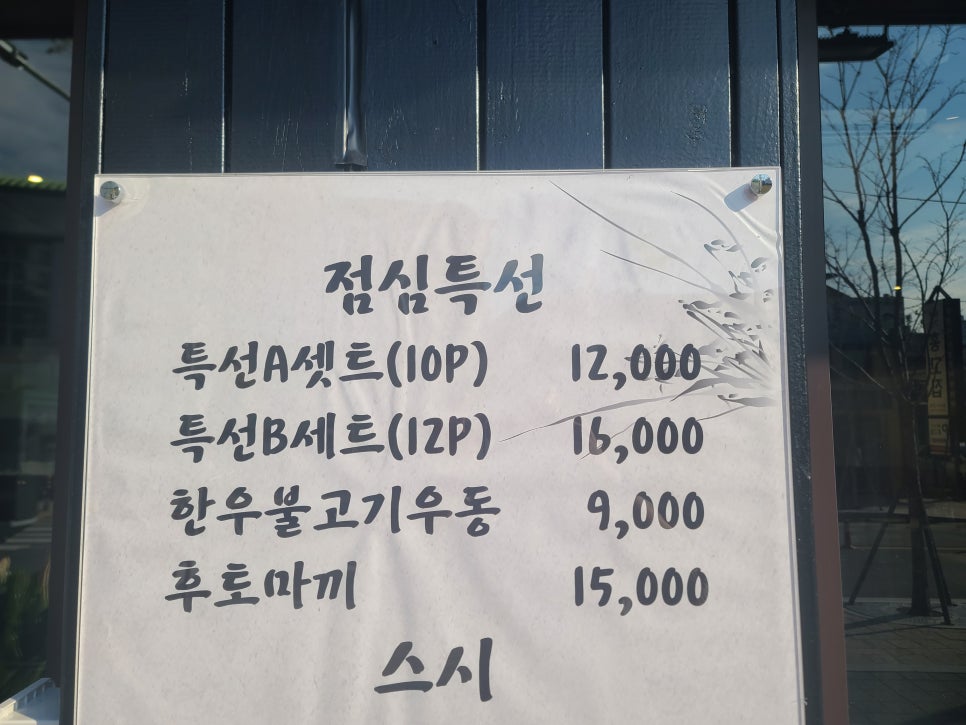 점심특선
특선A셋트(10P) 12,000
특선B세트(12P) 16,000
한우불고기우동 9,000
후토마끼 15,000
스시